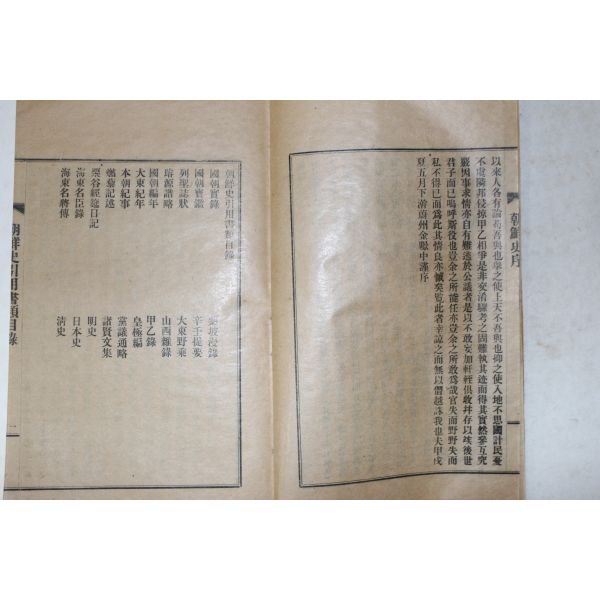 朝鮮史序
以來人各有論苟吾與也舉之使上天不吾與也抑之使入地不思國計民憂
不慮隣邦侵掠甲乙相爭是非交淆驟考之固難執其迹而得其實然參互究
覈因事求情亦自有難逃於公議者是以不敢妄加軒輊俱收並存以竢後世
君子而已嗚呼斯役也豈余之所能任亦豈余之所敢爲哉官失而野野失而
私不得已而爲此其情良亦慽矣覽此者幸諒之而無以僭越誅我也夫甲戌
夏五月下澣蔚州金 中謹序
朝鮮史引用書類目錄
國朝實錄
國朝寶鑑
列聖誌狀
璿源譜略
國朝編年
大東紀年
本朝紀事
燃藜記述
栗谷經筵日記
海東名臣錄
海東名將傳
坡漫錄
辛壬提要
大東野乘
山西雜錄
甲乙錄
皇極編
黨議通略
諸賢文集
明史
日本史
淸史
朝鮮史引用書類目錄
一